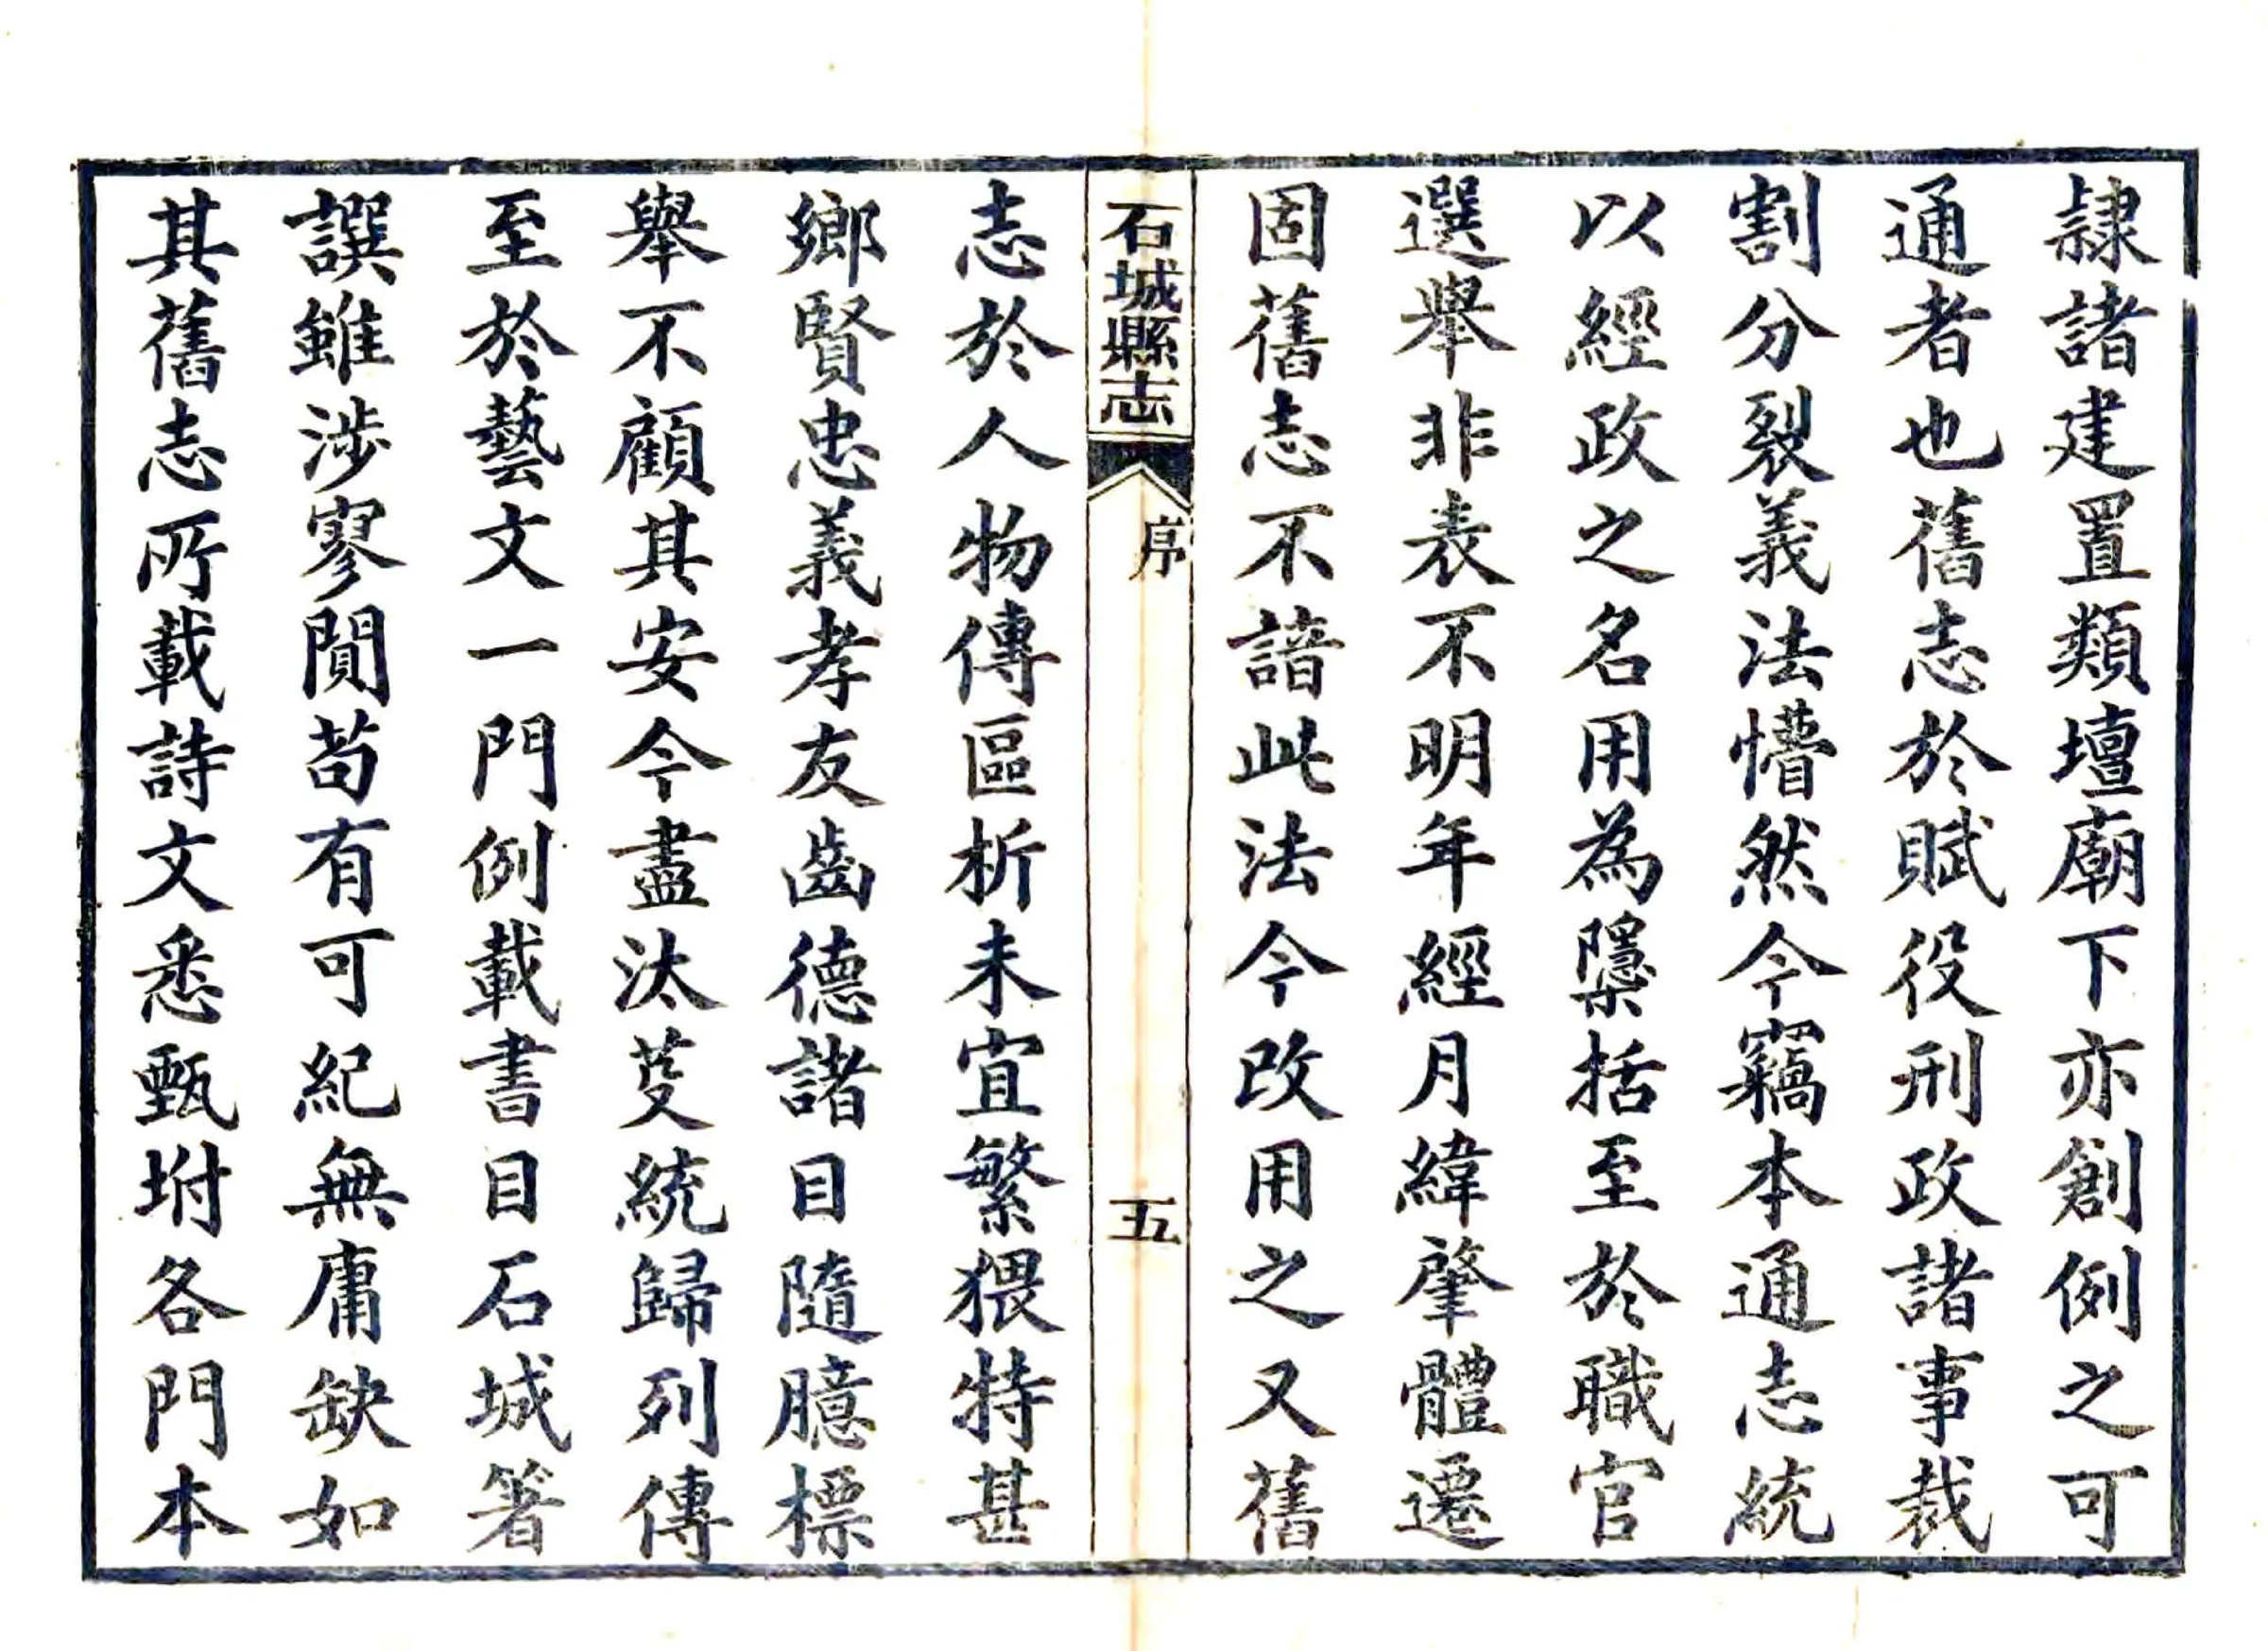 隷諸建置類壇廟下亦創例之可
通者也舊志於賦役刑政諸事裁
割分裂義法懵然今竊本通志統
以經政之名用為隱括至於職官
選舉非表不明年經月緯肇體遷
固舊志不諳此法今改用之又舊
石城縣志
序
五
志於人物傳區析未宜繁猥特甚
鄉賢忠義孝友齒德諸目隨臆標
舉不顧其安今盡汰芟統歸列傳
至於藝文一門例載書目石城箸
譔雖涉寥閴苟有可紀無庸缺如
其舊志所載詩文悉甄坿各門本